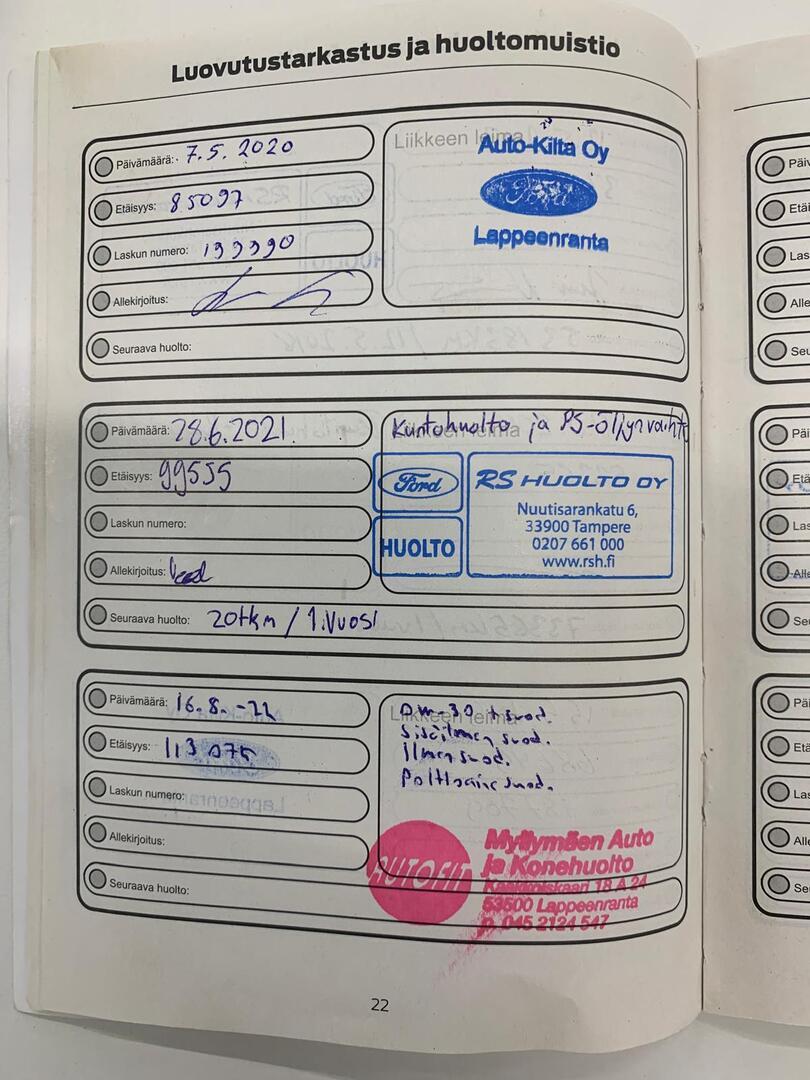 Luovutustarkastus ja huoltomuistio
Päivämäärä: 7.5. 2020
Etäisyys: 85097
Laskun numero: 199990
Allekirjoitus:
Seuraava huolto:
Liikkeen leima
Auto-Kilta Oy
Ford
Lappeenranta
Päivämäärä: 28.6.2021
Etäisyys: 99555
Laskun numero:
Allekirjoitus:
Seuraava huolto: 20tkm / 1.vuosi
Kuntohuolto ja PS-öljynvaihto
Liikkeen leima
Ford
HUOLTO
RS HUOLTO OY
Nuutisarankatu 6,
33900 Tampere
0207 661 000
www.rsh.fi
Päivämäärä: 16.8.-22
Etäisyys: 113 075
Laskun numero:
Allekirjoitus:
Seuraava huolto:
Liikkeen leima
+ suod.
Sisäilman suod.
Ilman suod.
Polttoaine suod.
AUTOFIT
Myllymäen Auto
ja Konehuolto
18 A 24
53500 Lappeenranta
p. 045 2124 547
22